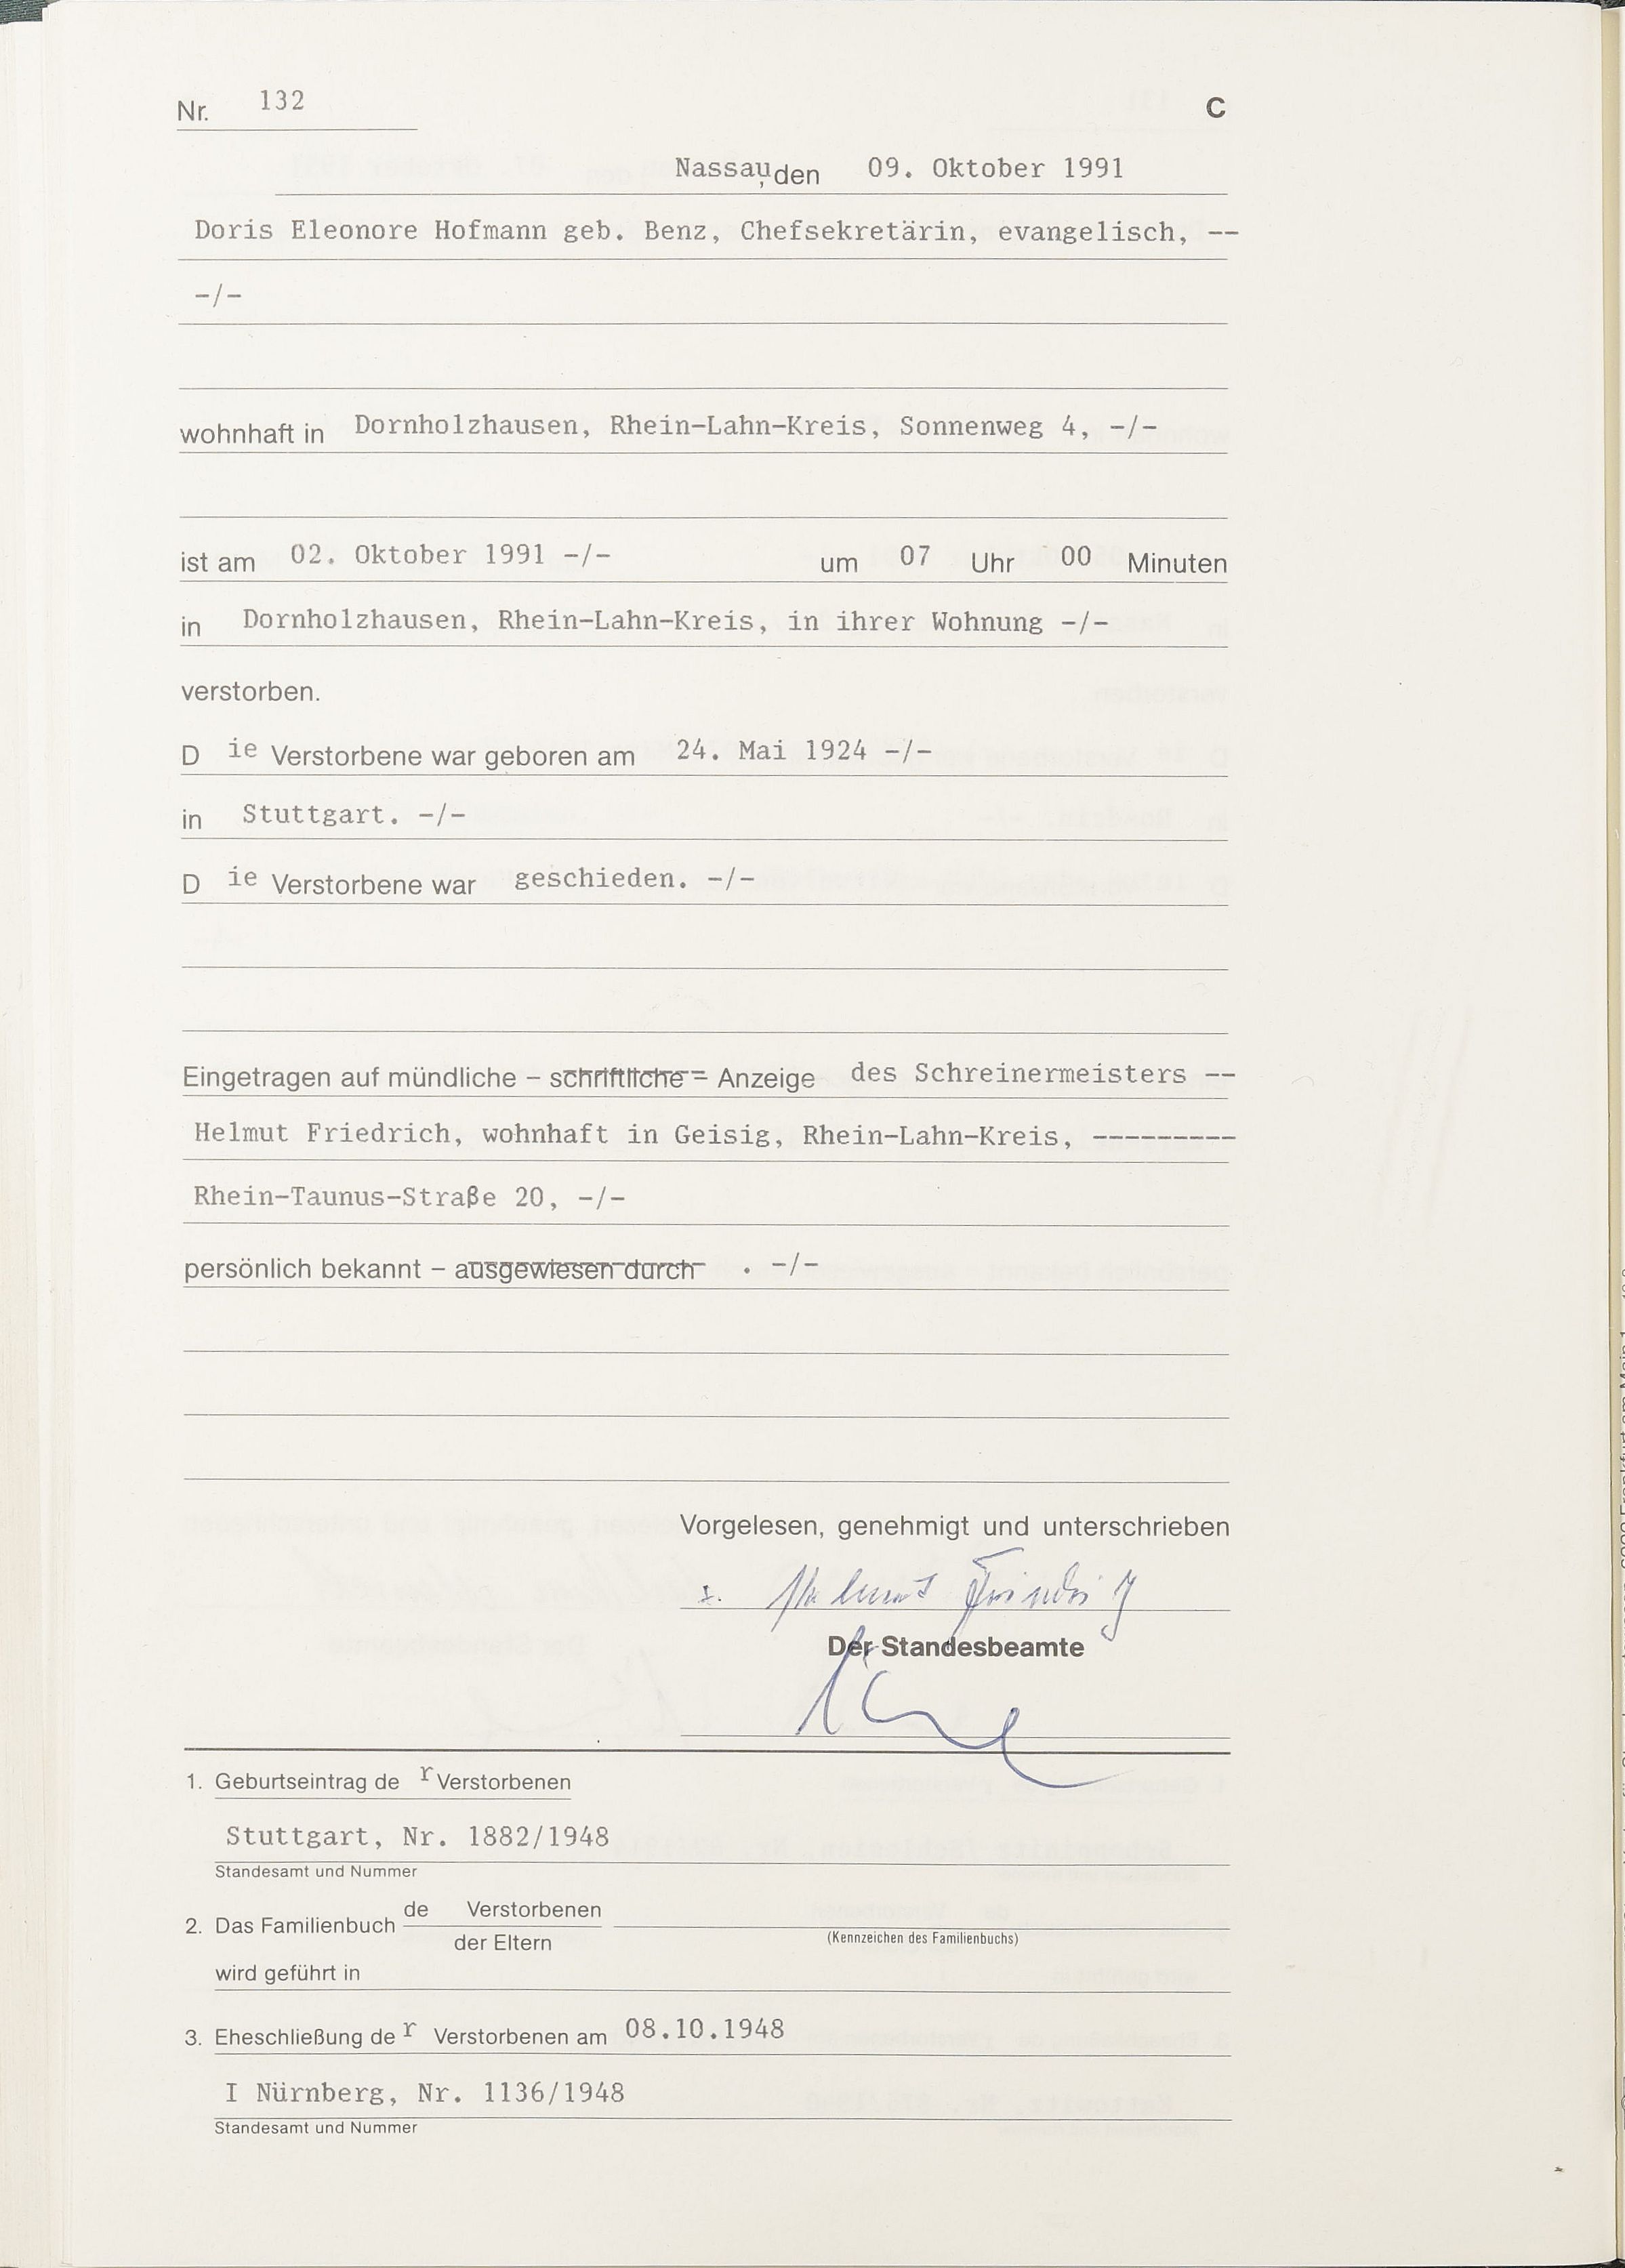 Nr. 132 C
Nassau, den 09. Oktober 1991
Doris Eleonore Hofmann geb. Benz, Chefsekretärin, evangelisch, --
-/-
wohnhaft in Dornholzhausen, Rhein-Lahn-Kreis, Sonnenweg 4, -/-
ist am 02. Oktober 1991 -/- um 07 Uhr 00 Minuten
in Dornholzhausen, Rhein-Lahn-Kreis, in ihrer Wohnung -/-
verstorben.
D ie Verstorbene war geboren am 24. Mai 1924 -/-
in Stuttgart. -/-
D ie Verstorbene war geschieden. -/-
Eingetragen auf mündliche – schriftliche – Anzeige des Schreinermeisters --
Helmut Friedrich, wohnhaft in Geisig, Rhein-Lahn-Kreis, ---------
Rhein-Taunus-Straße 20, -/-
persönlich bekannt – ausgewiesen durch . -/-
Vorgelesen, genehmigt und unterschrieben
Helmut Friedrich
Der Standesbeamte
1. Geburtseintrag de r Verstorbenen
Stuttgart, Nr. 1882/1948
Standesamt und Nummer
de Verstorbenen
2. Das Familienbuch
der Eltern
(Kennzeichen des Familienbuchs)
wird geführt in
3. Eheschließung de r Verstorbenen am 08.10.1948
I Nürnberg, Nr. 1136/1948
Standesamt und Nummer